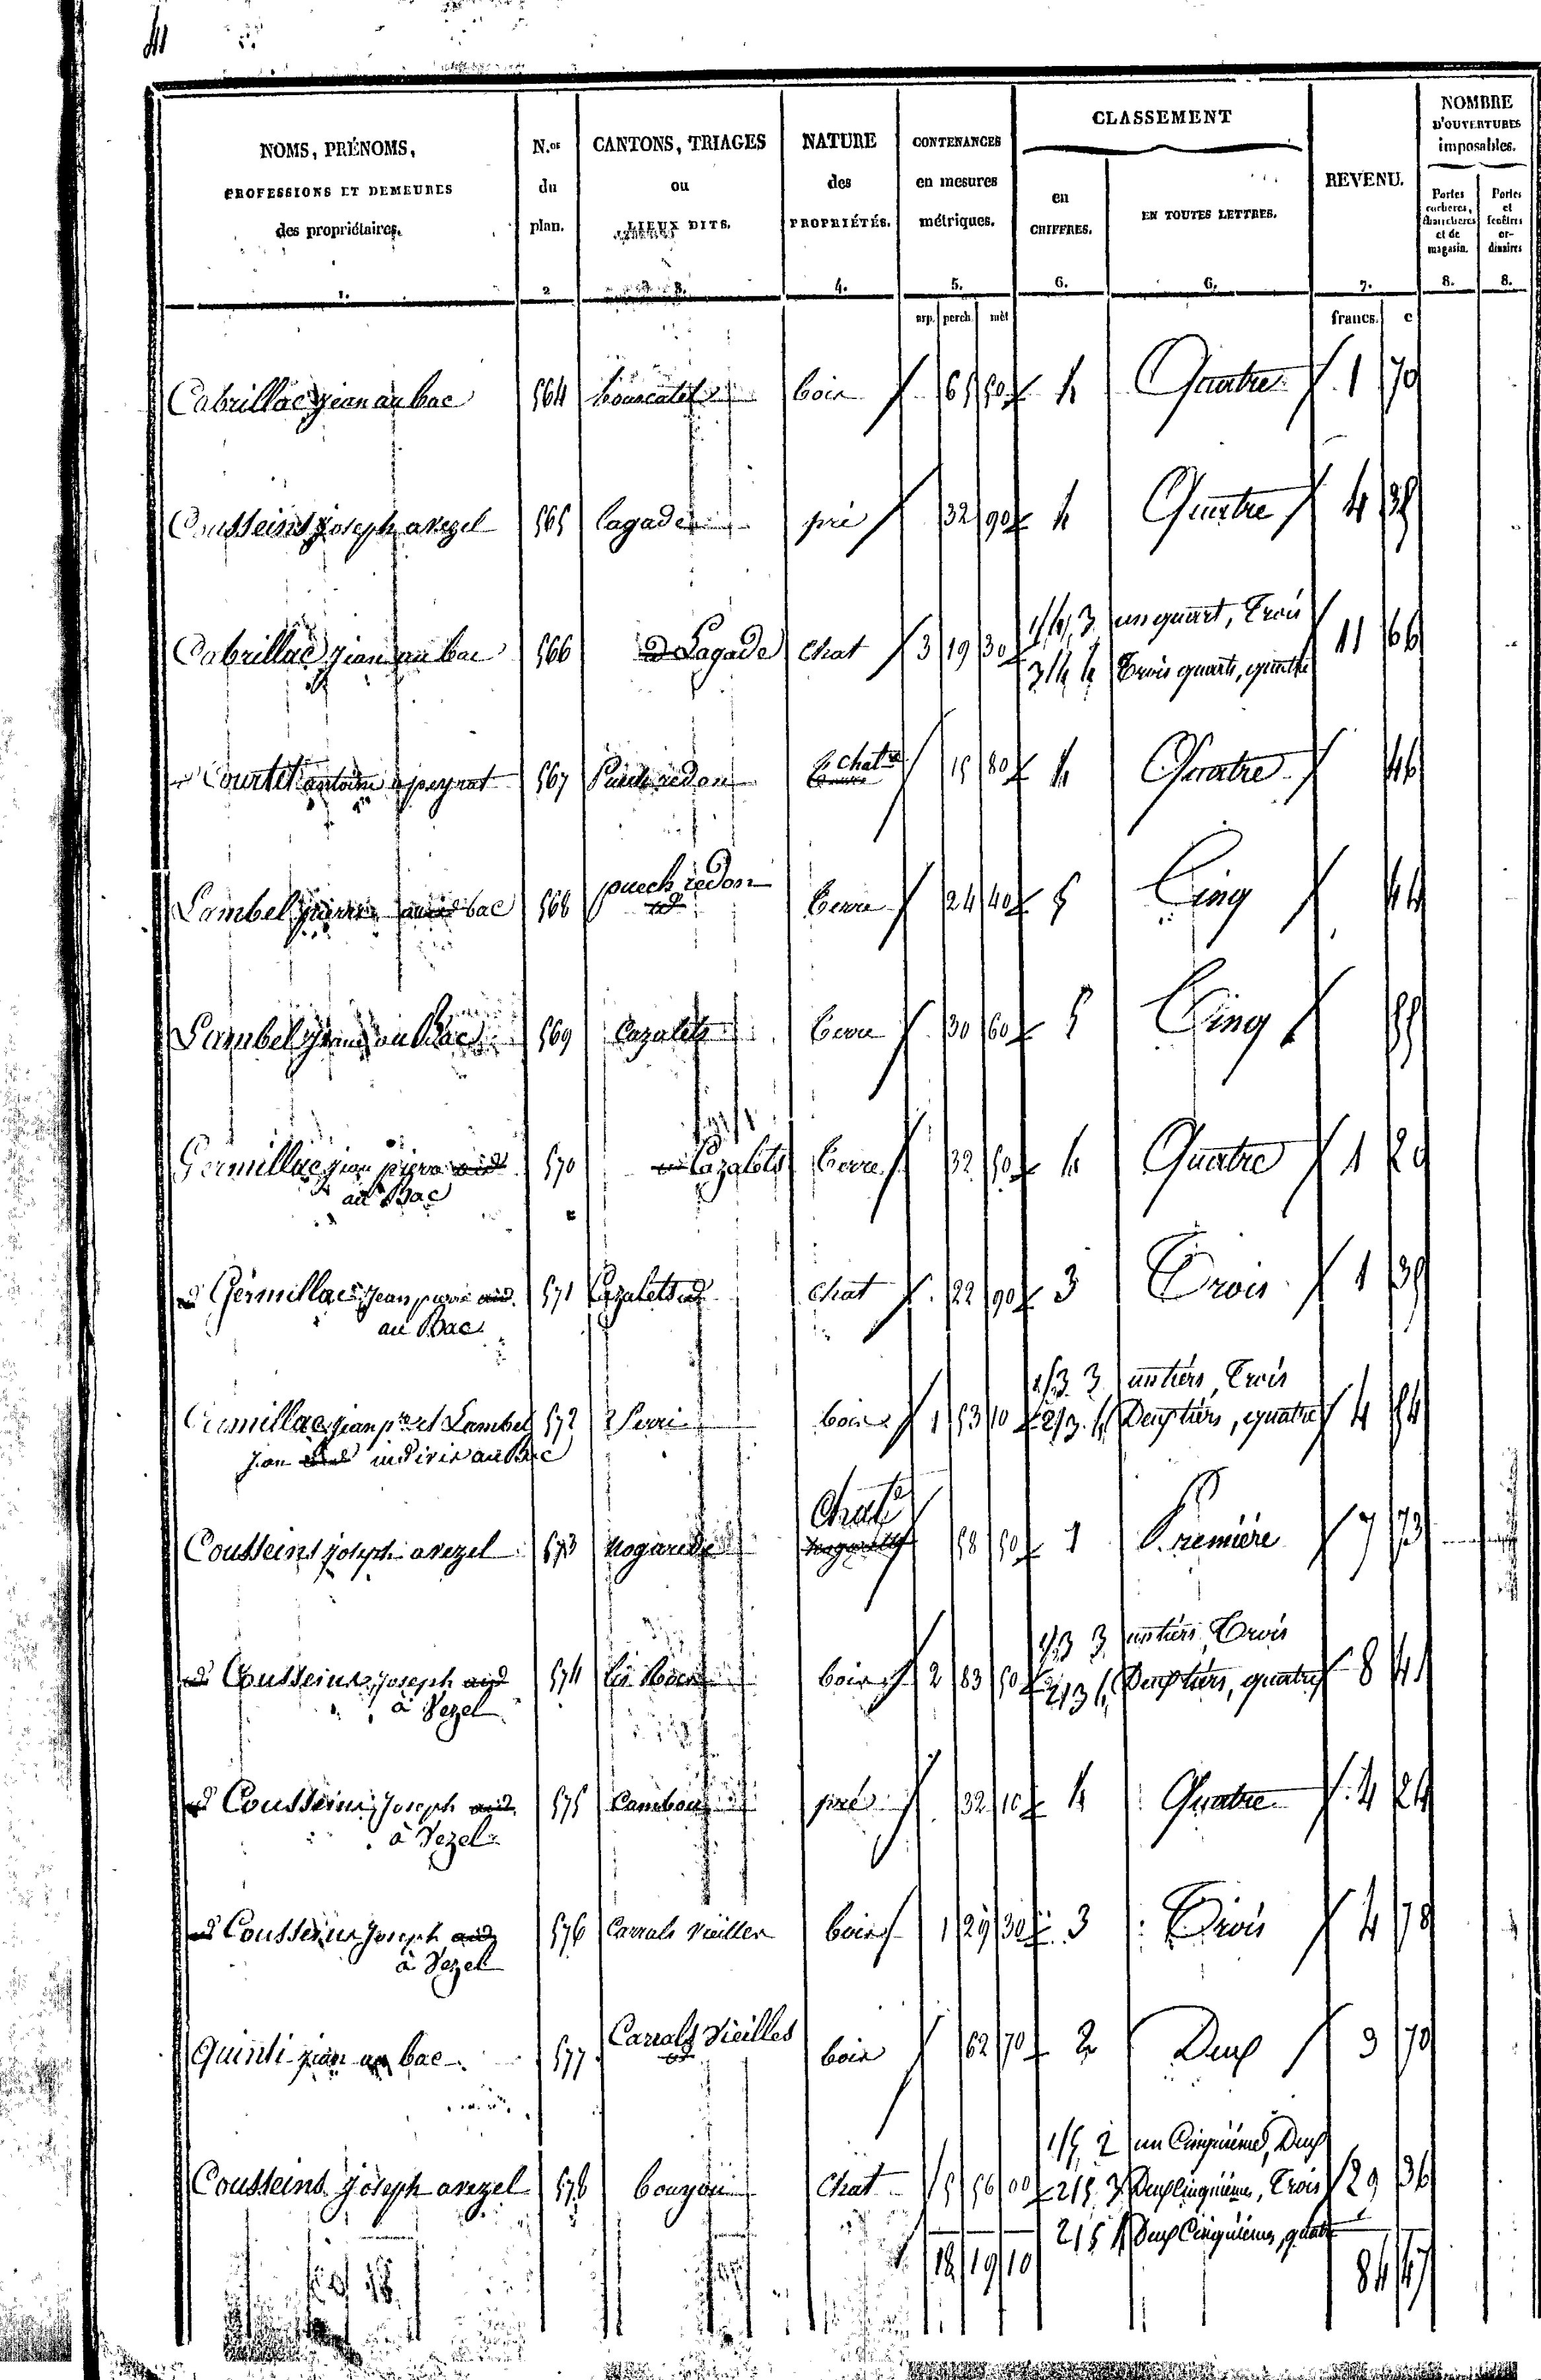 NOMS, PRÉNOMS, PROFESSIONS ET DEMEURES des propriétaires. N.os du plan. CANTONS, TRIAGES ou LIEUX DITS. NATURE des PROPRIÉTÉS. CONTENANCES en mesures métriques. CLASSEMENT en CHIFFRES. EN TOUTES LETTRES. REVENU. NOMBRE D'OUVERTURES imposables. Portes cocheres, charretieres et de magasin. Portes et fenêtres ordinaires
1. 2 3. 4. 5. 6. 6. 7. 8. 8.
arp. perch. mèt francs. c
Cabrillac jean au bac 564 bouscatel bois 65 50 4 Quatre 1 70
Cousseins joseph a vezel 565 lagade pré 32 90 4 Quatre 4 35
1/4, 3 un quart, Trois
Cabrillac jean au bac 566 Lagade chat 3 19 30 11 66
3/4 4 Trois quarts, quatre
Courtet antoine a peyrat 567 Puech redon chat 15 80 4 Quatre 46
Lambel pierre bac 568 puech redon terre 24 40 5 Cinq 44
Lambel jean au Bac 569 Cazalets terre 30 60 5 Cinq 55
Germillac jean pierre 570 Cazalets terre 32 50 4 Quatre 1 20
au Bac
Germillac jean pierre 571 Cazalets chat 22 90 3 Trois 1 39
au Bac
1/3 3 un tiers, Trois
Germillac jean p.re et Lambel 572 Serre bois 1 53 10 2/3. 4 Deux tiers, quatre 4 54
jean indivis au Bac
Cousseins joseph a vezel 573 nogarede Chat 58 50 1 Première 7 73
1/3 3 un tiers, Trois
Cousseins joseph 574 bois 2 83 50 2/3 4 Deux tiers, quatre 8 41
à Vezel
Cousseins joseph 575 Cambou pré 32 10 4 Quatre 4 24
à Vezel
Cousseins joseph 576 Carrals vieilles bois 1 29 30 3 Trois 4 78
à Vezel
Quinti jean au bac 577 Carrals Vieilles bois 62 70 2 Deux 3 70
1/5 2 un Cinquième, Deux
Cousseins joseph a vezel 578 bouyou Chat 5 56 00 2/5 3 Deux Cinquième, Trois 29 36
2/5 4 Deux Cinquièmes, quatre
18 19 10 84 47